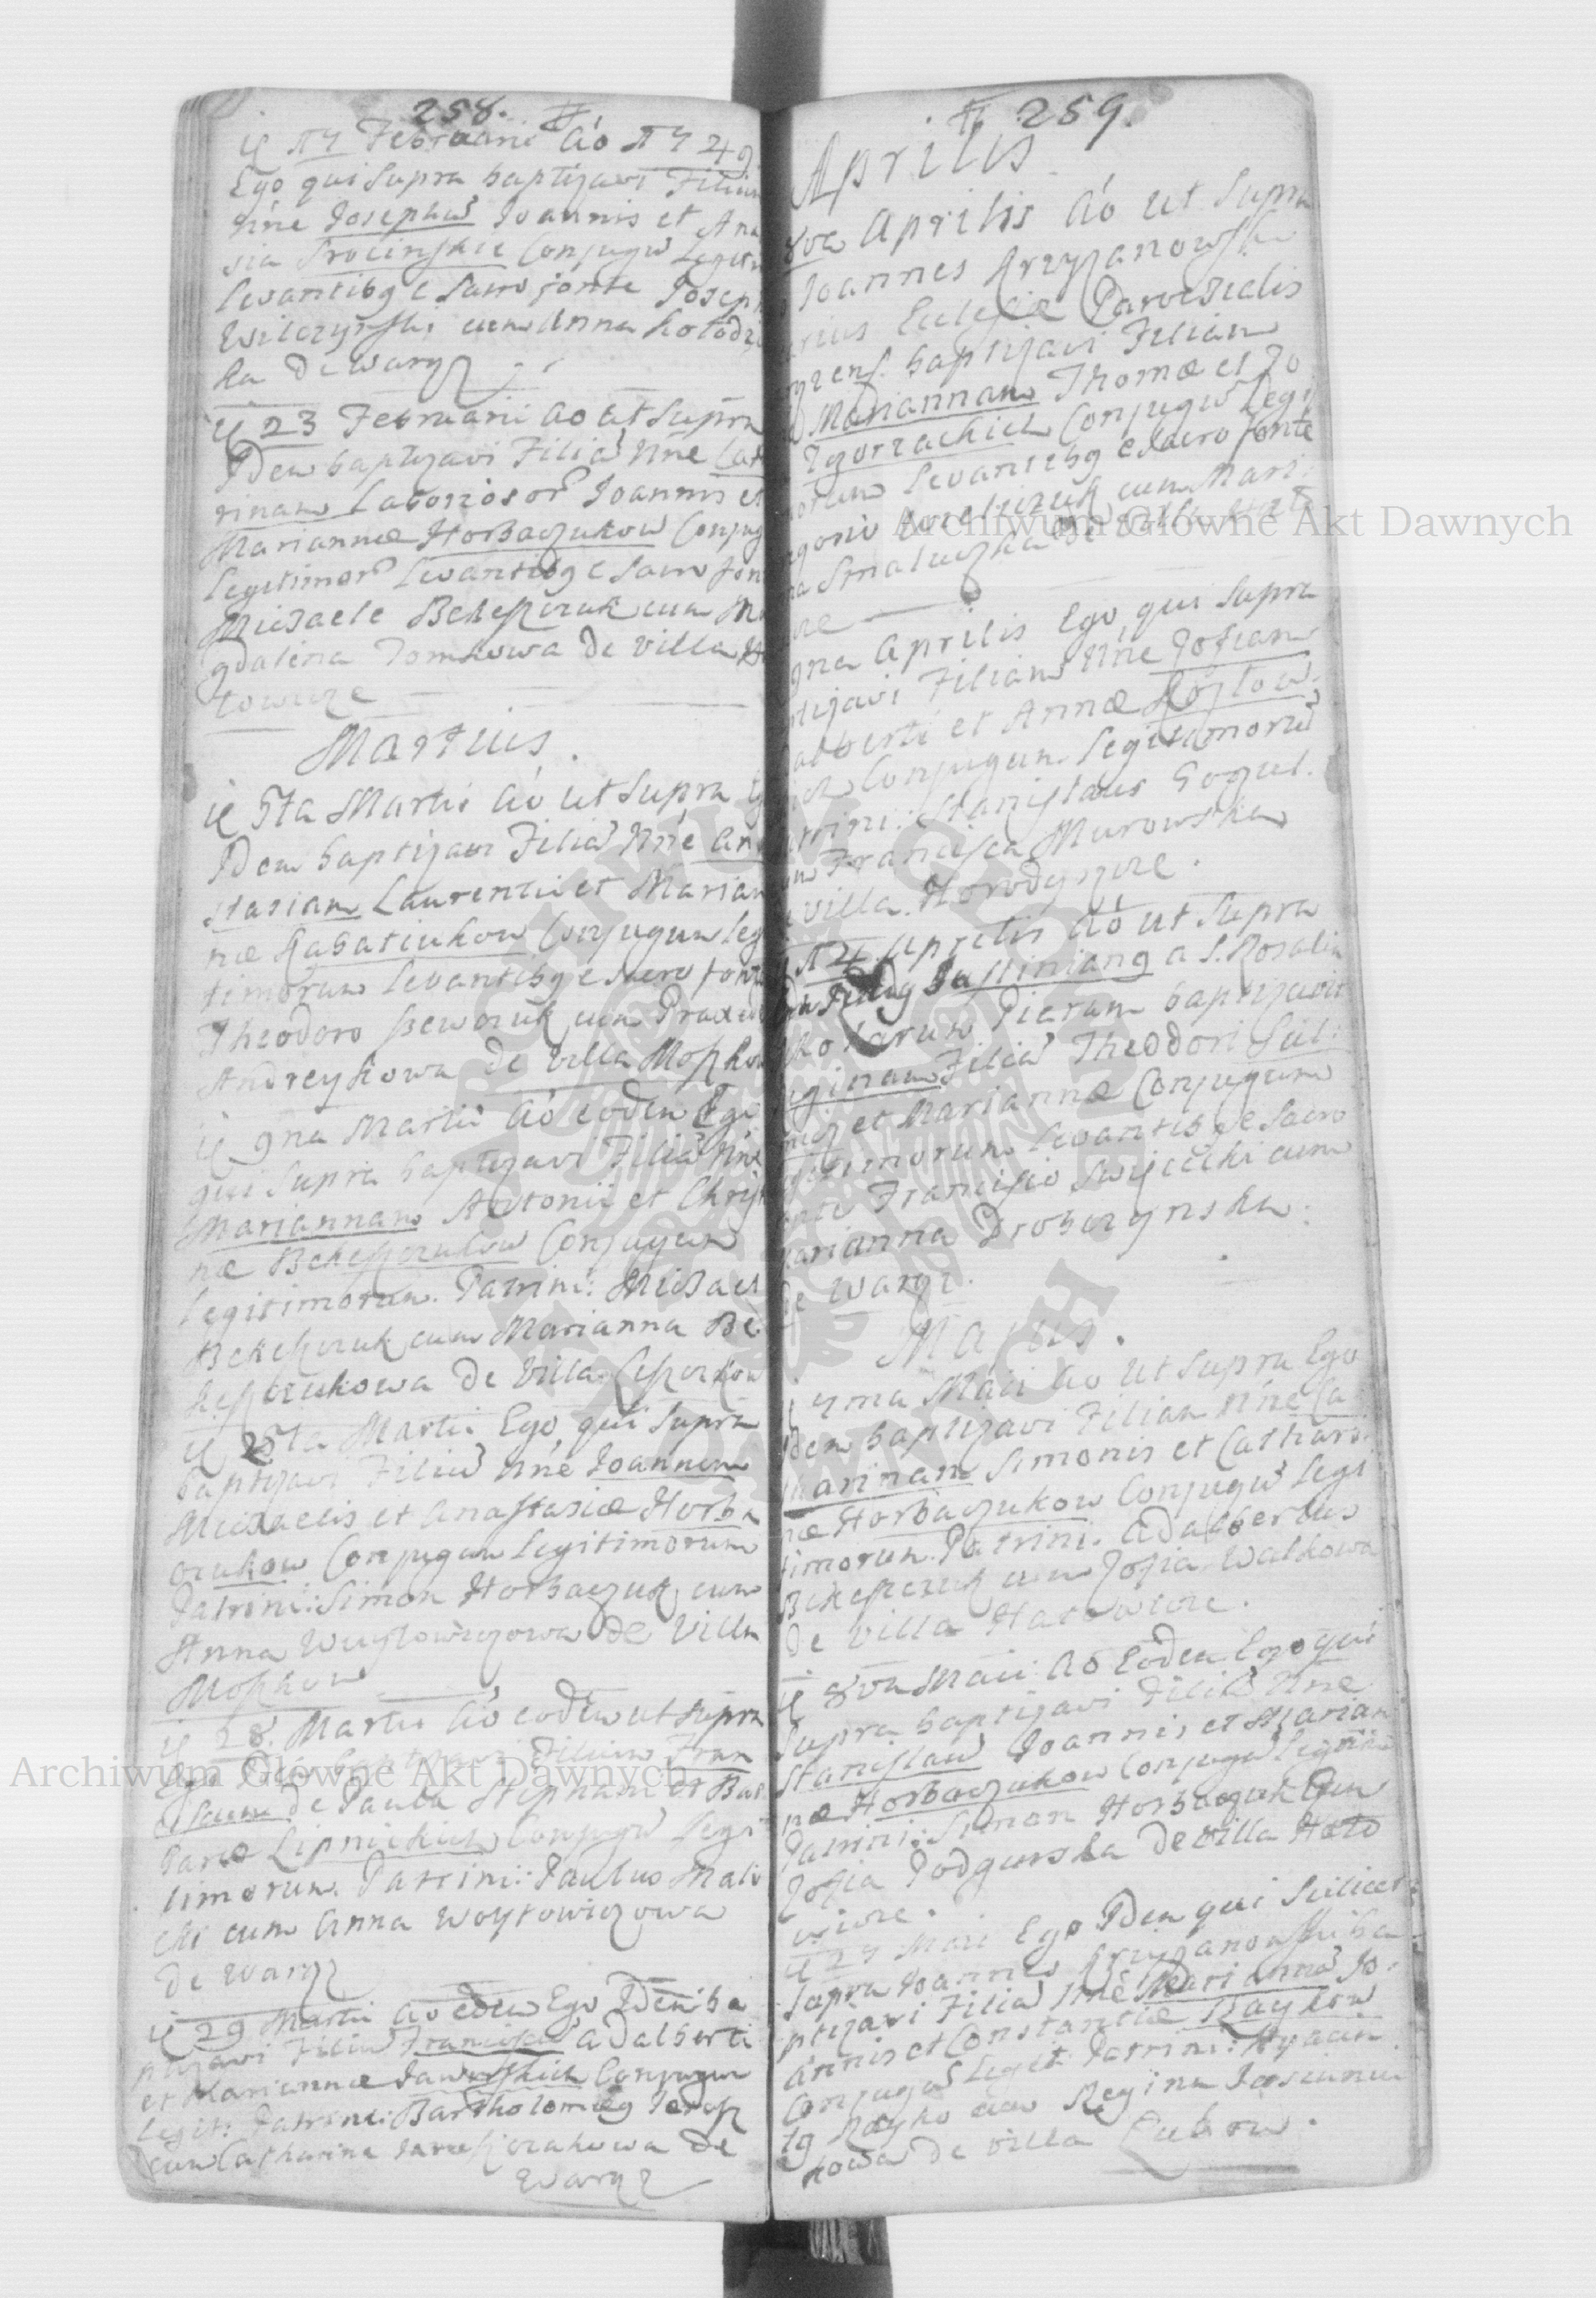 258.
Die 17 Februarii Aó 1749
Ego qui Supra baptizavi Filium
Nine Josephū Joannis et Ana
sia Trocinskie Conjugū Legitim
Levantibg e Sacro fonte Joseph
Wilczynski cum Anna Kołodzi
ka De Waręz
Die 23 Februarii Ao ut Supra
Idem baptizavi Filiā Nine Cat
rinam Laboriosor Joannis et
Mariannæ Horbaczukow Conjug
Legitimor Levantibg e Sacro fon
Michaele Bekeszczuk cum Ma
gdalena Tomkowa De Villa H
towicze
Martius.
Die 5ta Martii Aó ut Supra Eg
Idem baptizavi Filiā Nine An
stasiam Laurentii et Marian
næ Kabatiukow Conjugum Leg
timorum Levantibg e Sacro fonte
Theodoro Szewczuk cum Praxed
Andreykowa de Villa Moszkow
Die 9na Martii Aó eodem Ego
qui Supra baptizavi Filiā Nine
Mariannam Antonii et Chrys
næ Bekeszczukow Conjugum
Legitimorum. Patrini: Michael
Bekeszczuk cum Marianna Be
keszczukowa De Villa Leszczkow
Die 25ta Martii Ego, qui Supra
baptizavi Filiū Nine Joannem
Michaelis et Anastasiæ Horba
czukow Conjugum Legitimorum
Patrini: Simon Horbaczuk cum
Anna Woytowiczowa De Villa
Moszkow
Die 28. Martii Aó eodem ut Supra
Ego Idem baptizavi Filium Fran
ciscum de Paula Stephani et Bar
baræ Lipnickich Conjugū Legi
timorum. Patrini: Paulus Mali
cki cum Anna Woytowiczowa
de Waręz
Die 29 Martii Ao eodē Ego Idem ba
ptizavi Filiū Franciscū Adalberti
et Mariannæ Jaworskich Conjugum
Legit: Patrini: Bartholomæg
cum Catharina De
Waręz
259.
Aprilis
8va Aprilis Aó ut Supra
Joannes Krzyzanowski
rius Eclesiæ Parochialis
baptizavi Filiam
Mariannam Thomæ et Zo
Zgorzackich Conjugū Legi
orum Levantibg e Sacro fonte
cum Mari
na Smaluczka De Villa
9na Aprilis Ego, qui Supra
ptizavi Filiam Nine Zofiam
alberti et Annæ Kozłow
ich Conjugum Legitimorū
atrini: Stanislaus Gogul.
um Francisca Murowska
villa Horodyszcze.
14 Aprilis Aó ut Supra
Justiniang a S. Rosalia
olarum Piarum baptizavit
eginam Filiā Theodori Sul
et Mariannæ Conjugum
gitimorum Levantibg e Sacro
onte Francisco Swięcicki cum
arianna Drobczynska.
De Waręz.
Majus.
7ma Maii Ao ut Supra Ego
Idem baptizavi Filiam Nine Ca
tharinam Simonis et Cathari
næ Horbaczukow Conjugū Legi
timorum. Patrini. Adalbertus
Bekeszczuk cum Zofia Walkowa
De Villa Hatowicze.
Die 8va Maii Ao Eodem Ego qui
Supra baptizavi Filiū Nine
Stanislaū Joannis et Marian
næ Horbaczukow Conjugū Legitim
Patrini: Simon Horbaczuk Cum
Zofia Podgurska De Villa Hato
wicze.
Die 27 Maii Ego Idem qui Scilicet
Supra Joannes Krzyzanowski ba
ptizavi Filiā Nine Mariannā Jo
annis et Constantiæ Raykow
Conjugū Legit: Patrini: Hyacin
tg Rayko cum Regina
kowa de villa Łubow.
Archiwum Główne Akt Dawnych
Archiwum Główne Akt Dawnych
ARCHIWUM GŁÓWNE AKT DAWNYCH